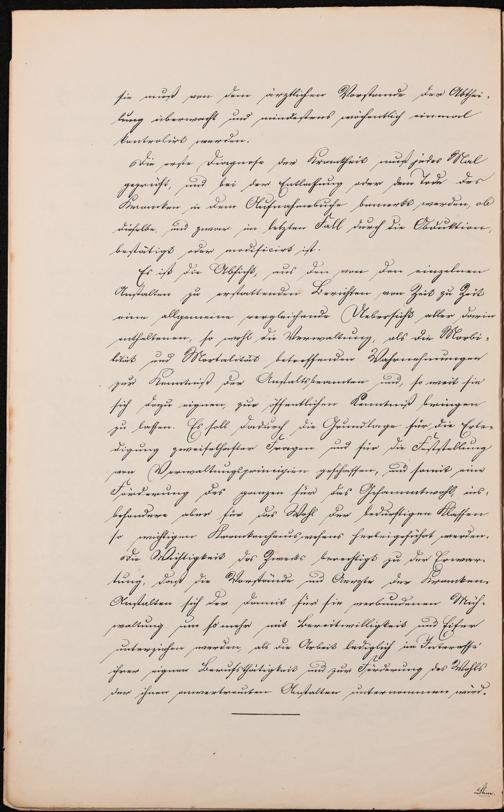 sie muß von dem ärztlichen Vorstande der Abthei-
lung überwacht und mindestens wöchentlich einmal
kontrolirt werden.
Die erste Diagnose der Krankheit muß jedes Mal
geprüft, und bei der Entlassung oder dem Tode des
Kranken in dem Aufnahmebuche bemerkt werden, ob
dieselbe, und zwar im letzten Fall durch die Obduktion,
bestätigt oder modificirt ist.
Es ist die Absicht, aus den von den einzelnen
Anstalten zu erstattenden Berichten von Zeit zu Zeit
eine allgemeine vergleichende Uebersicht aller darin
enthaltenen, so wohl die Verwaltung, als die Morbi-
lität und Mortalität betreffenden Wahrnehmungen
zur Kenntniß der Anstaltsbeamten und, so weit sie
sich dazu eignen, zur öffentlichen Kenntniß bringen
zu lassen. Es soll dadurch die Grundlage für die Erle-
digung zweifelhafter Fragen und für die Feststellung
von Verwaltungsprincipien geschaffen, und somit eine
Förderung des ganzen für das Gesammtwohl, ins-
besondere aber für das Wohl der bedürftigen Klassen
so wichtigen Krankenhauswesens herbeigeführt werden.
Die Wichtigkeit des Zwecks berechtigt zu der Erwar-
tung, daß die Vorstände und Aerzte der Kranken-
Anstalten sich der damit für sie verbundenen Müh-
waltung um so mehr mit Bereitwilligkeit und Eifer
unterziehen werden, als die Arbeit lediglich im Interesse
ihrer eignen Berufsthätigkeit und zur Förderung des Wohls
der ihnen anvertrauten Anstalten unternommen wird.